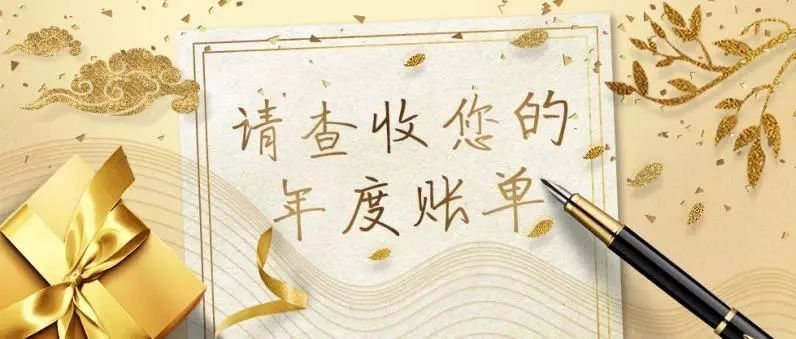 请查收您的
年度账单